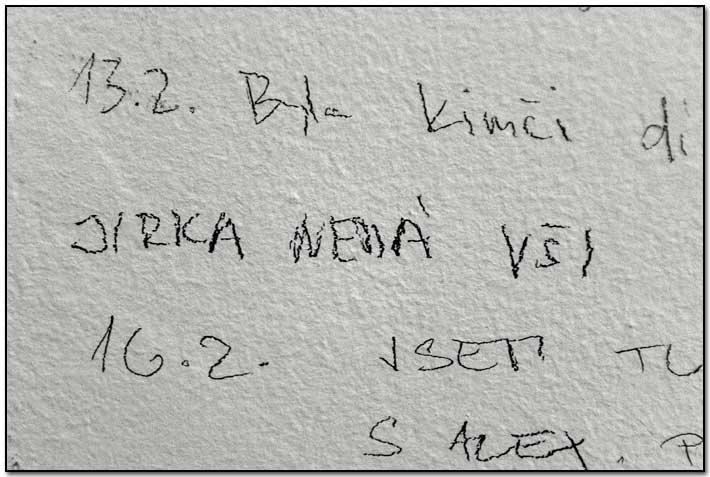 13.2. Byla Kimči di
JIRKA NEMÁ VŠI
16.2. VŠETI TU
S ALEX. P